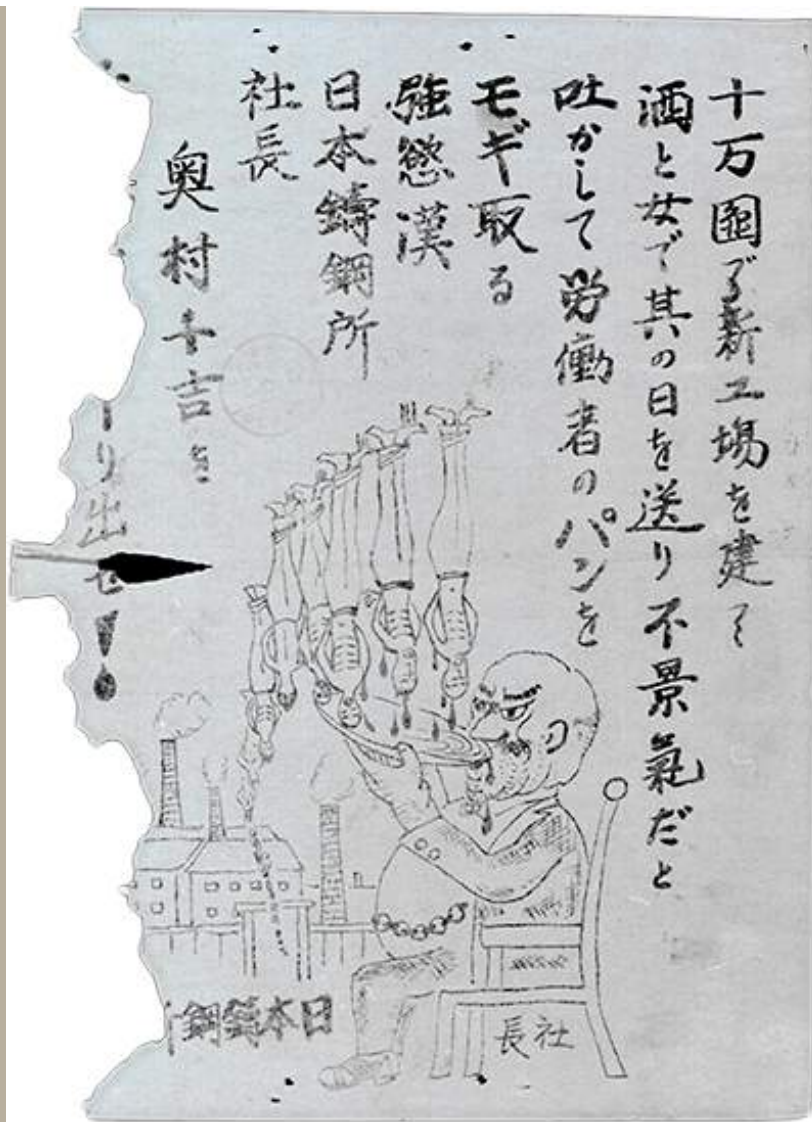 十万圓で新工場を建て
酒と女で其の日を送り不景氣だと
吐かして労働者のパンを
モギ取る
強慾漢
日本鑄鋼所
社長
奥村千吉を
り出せ!
日本鑄鋼
社長